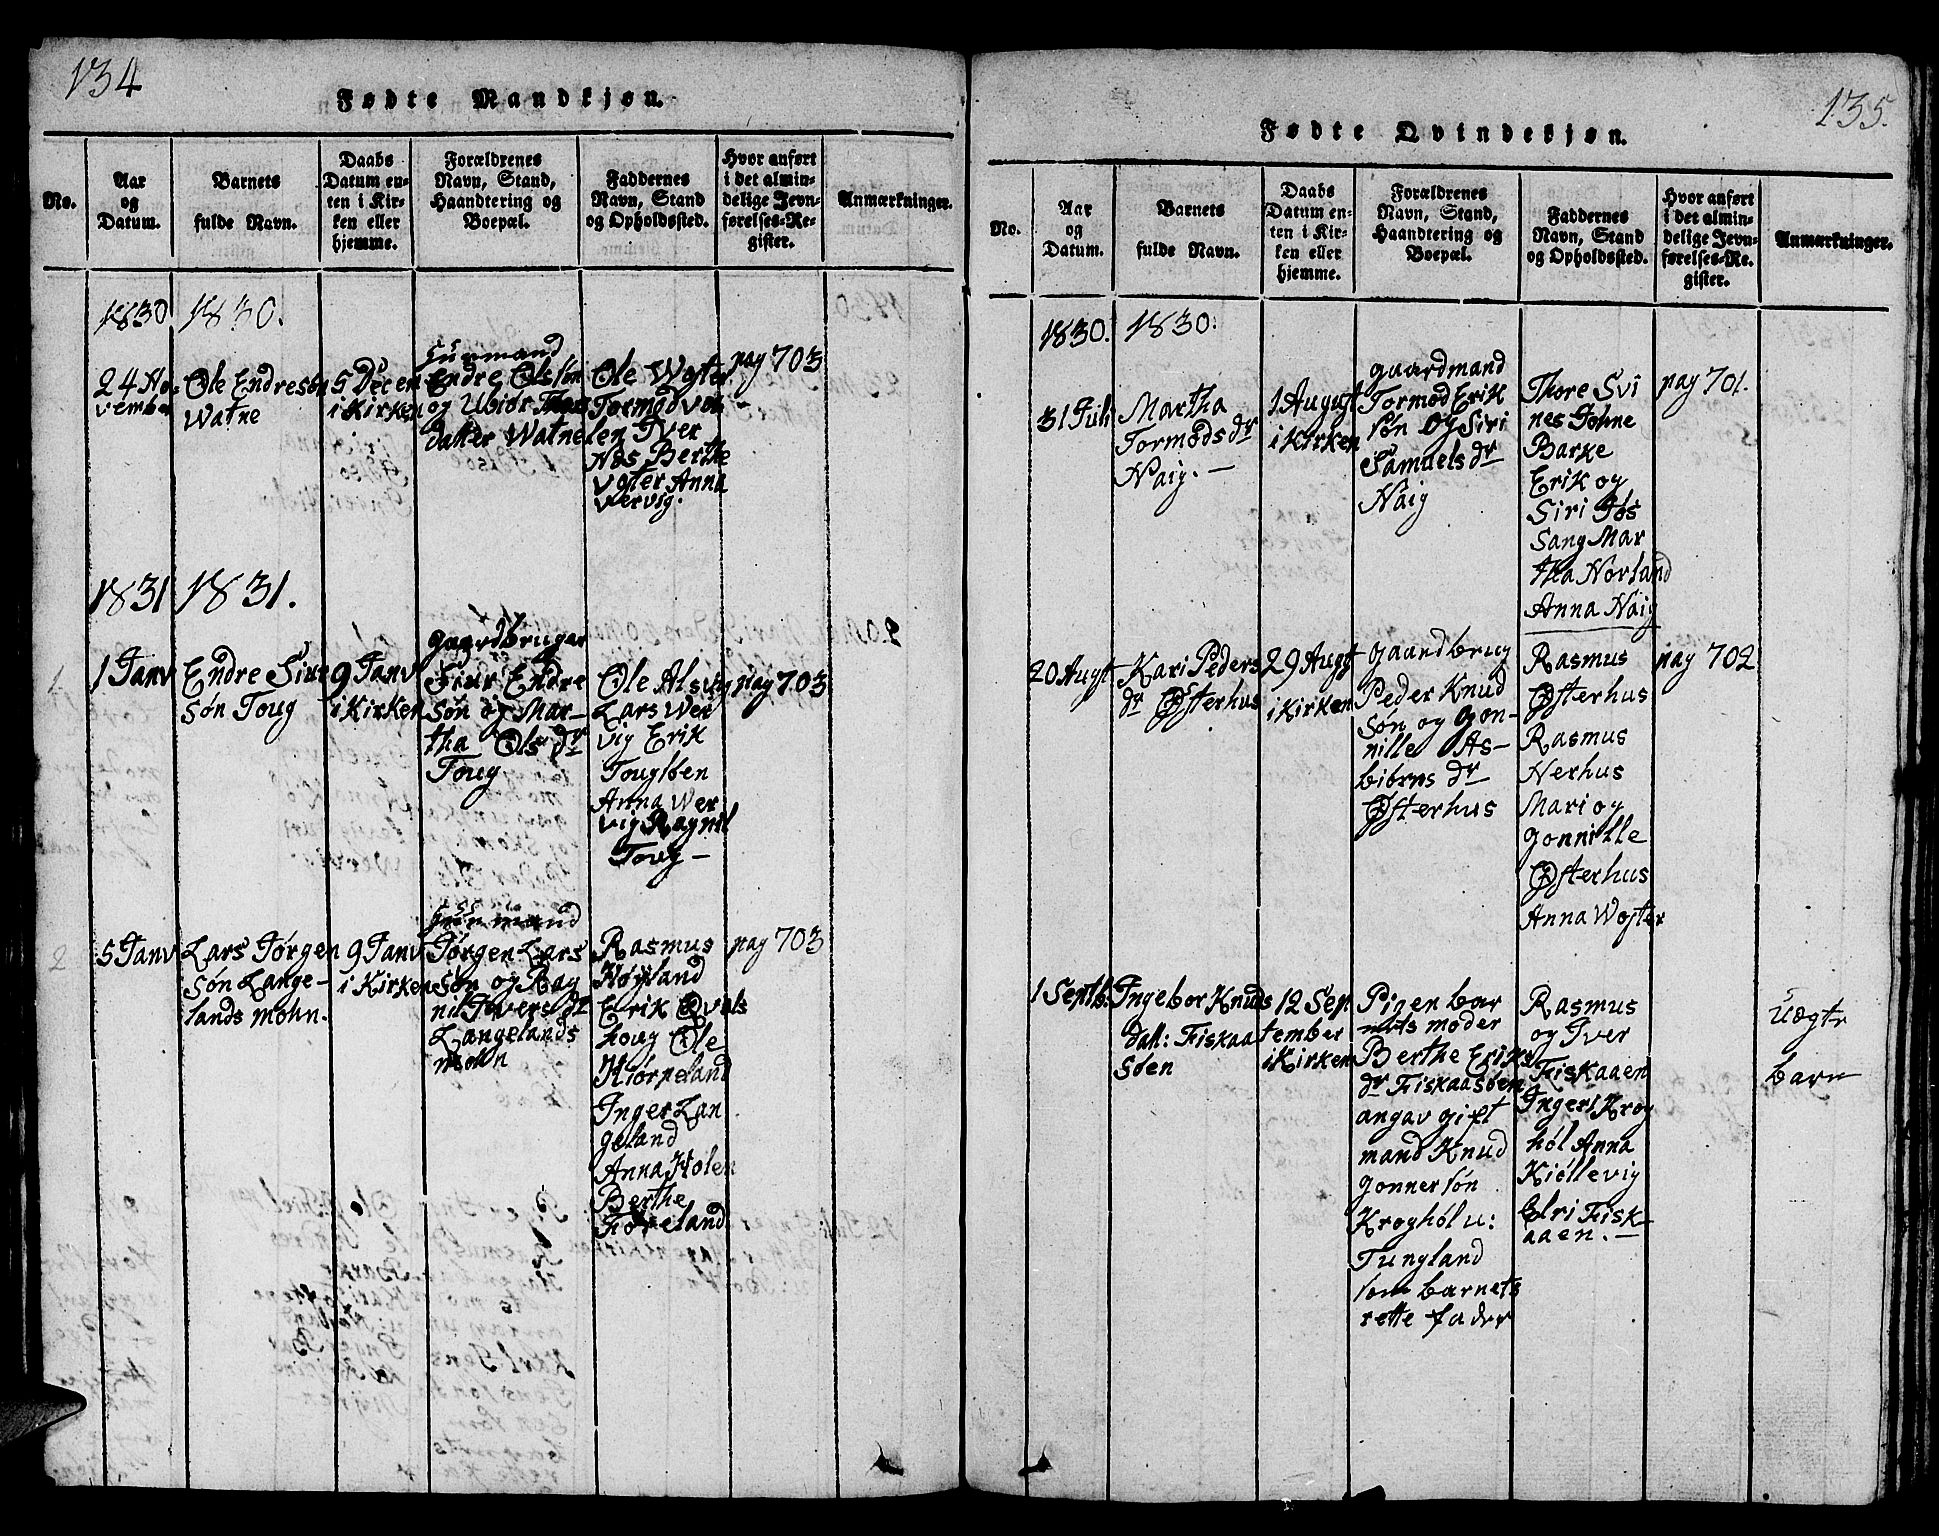 134
Fødte Mandkjøn.
No.
Aar
og
Datum.
Barnets
fulde Navn.
Daabs
Datum en-
ten i Kir-
ken eller
hjemme.
Forældrenes
Navn, Stand,
Haandtering og
Boepæl.
Faddernes
Navn, Stand
og Opholdssted.
Hvor anført
i det almin-
delige Jevn-
førelses-Re-
gister.
Anmærkninger.
1830
1830.
24 No-
vember
Ole Endresøn
Watne
5 Decem
i Kirken
Huusmand
Endre Olssøn
og Ubiør
datter Watne
Ole Woster
Tormod
len Iver
Næs Berthe
Voter Anna
Vervig.
pag 703
1831
1831.
1
1 Janv
Endre Siur
søn Toug
9 Janv
i Kirken
Gaardbruger
Siur Endre
søn og Mar-
tha Ols dr
Toug
Ole Alsvig
Lars Wer
vig Erik
Tougsøen
Anna Wer
vig Ragnil
Toug —
pag 703
2
5 Janv
Lars Jørgen
søn Lange-
lands mohn.
9 Janv
i Kirken
Huusmand
Jørgen Lars
søn og Rag
nil Ivers dr
Langelands
mohn
Rasmus
Høyland
Erik Qvals
houg Ole
Hiørpeland
Inger Lan
geland
Anna Holen
Berthe
Føreland
pag 703
135.
Fødte Qvindekjøn.
No.
Aar
og
Datum.
Barnets
fulde Navn.
Daabs
Datum en-
ten i Kir-
ken eller
hjemme.
Forældrenes
Navn, Stand,
Haandtering og
Boepæl.
Faddernes
Navn, Stand
og Opholdssted.
Hvor anført
i det almin-
delige Jevn-
førelses-Re-
gister.
Anmærkninger.
1830.
1830.
31 Juli
Martha
Tormods dr
Naig. —
1 August
i Kirken
gaardmand
Tormod Erik
søn og Siri
Samuels dr
Naig
Thore Svi
nes Johne
Barke
Erik og
Siri Jøs
sang Mar
tha Norland
Anna Naig
pag 701.
20 Augst
Kari Peders
dr Østerhus
29 Augst
i Kirken
gaardbrug
Peder Knud
søn og Gon-
nille As-
biørns dr
Østerhus
Rasmus
Østerhus
Rasmus
Nerhus
Mari og
Gonnille
Østerhus
Anna Woster
pag 702
1 Septb.
Ingebor Knuds
datt: Fiskaa
søen
12 Sep
tember
i Kirken
Pigen bar
nets moder
Berthe Eriks
dr Fiskaasøen
angav gift
mand Knud
Gonnersøn
Kroghøl u:
Tungland
som barnets
rette fader
Rasmus
og Iver
Fiskaaen
Inger Krog
høl Anna
Kiøllevig
Elri Fisk-
aaen. —
Uægte
barn